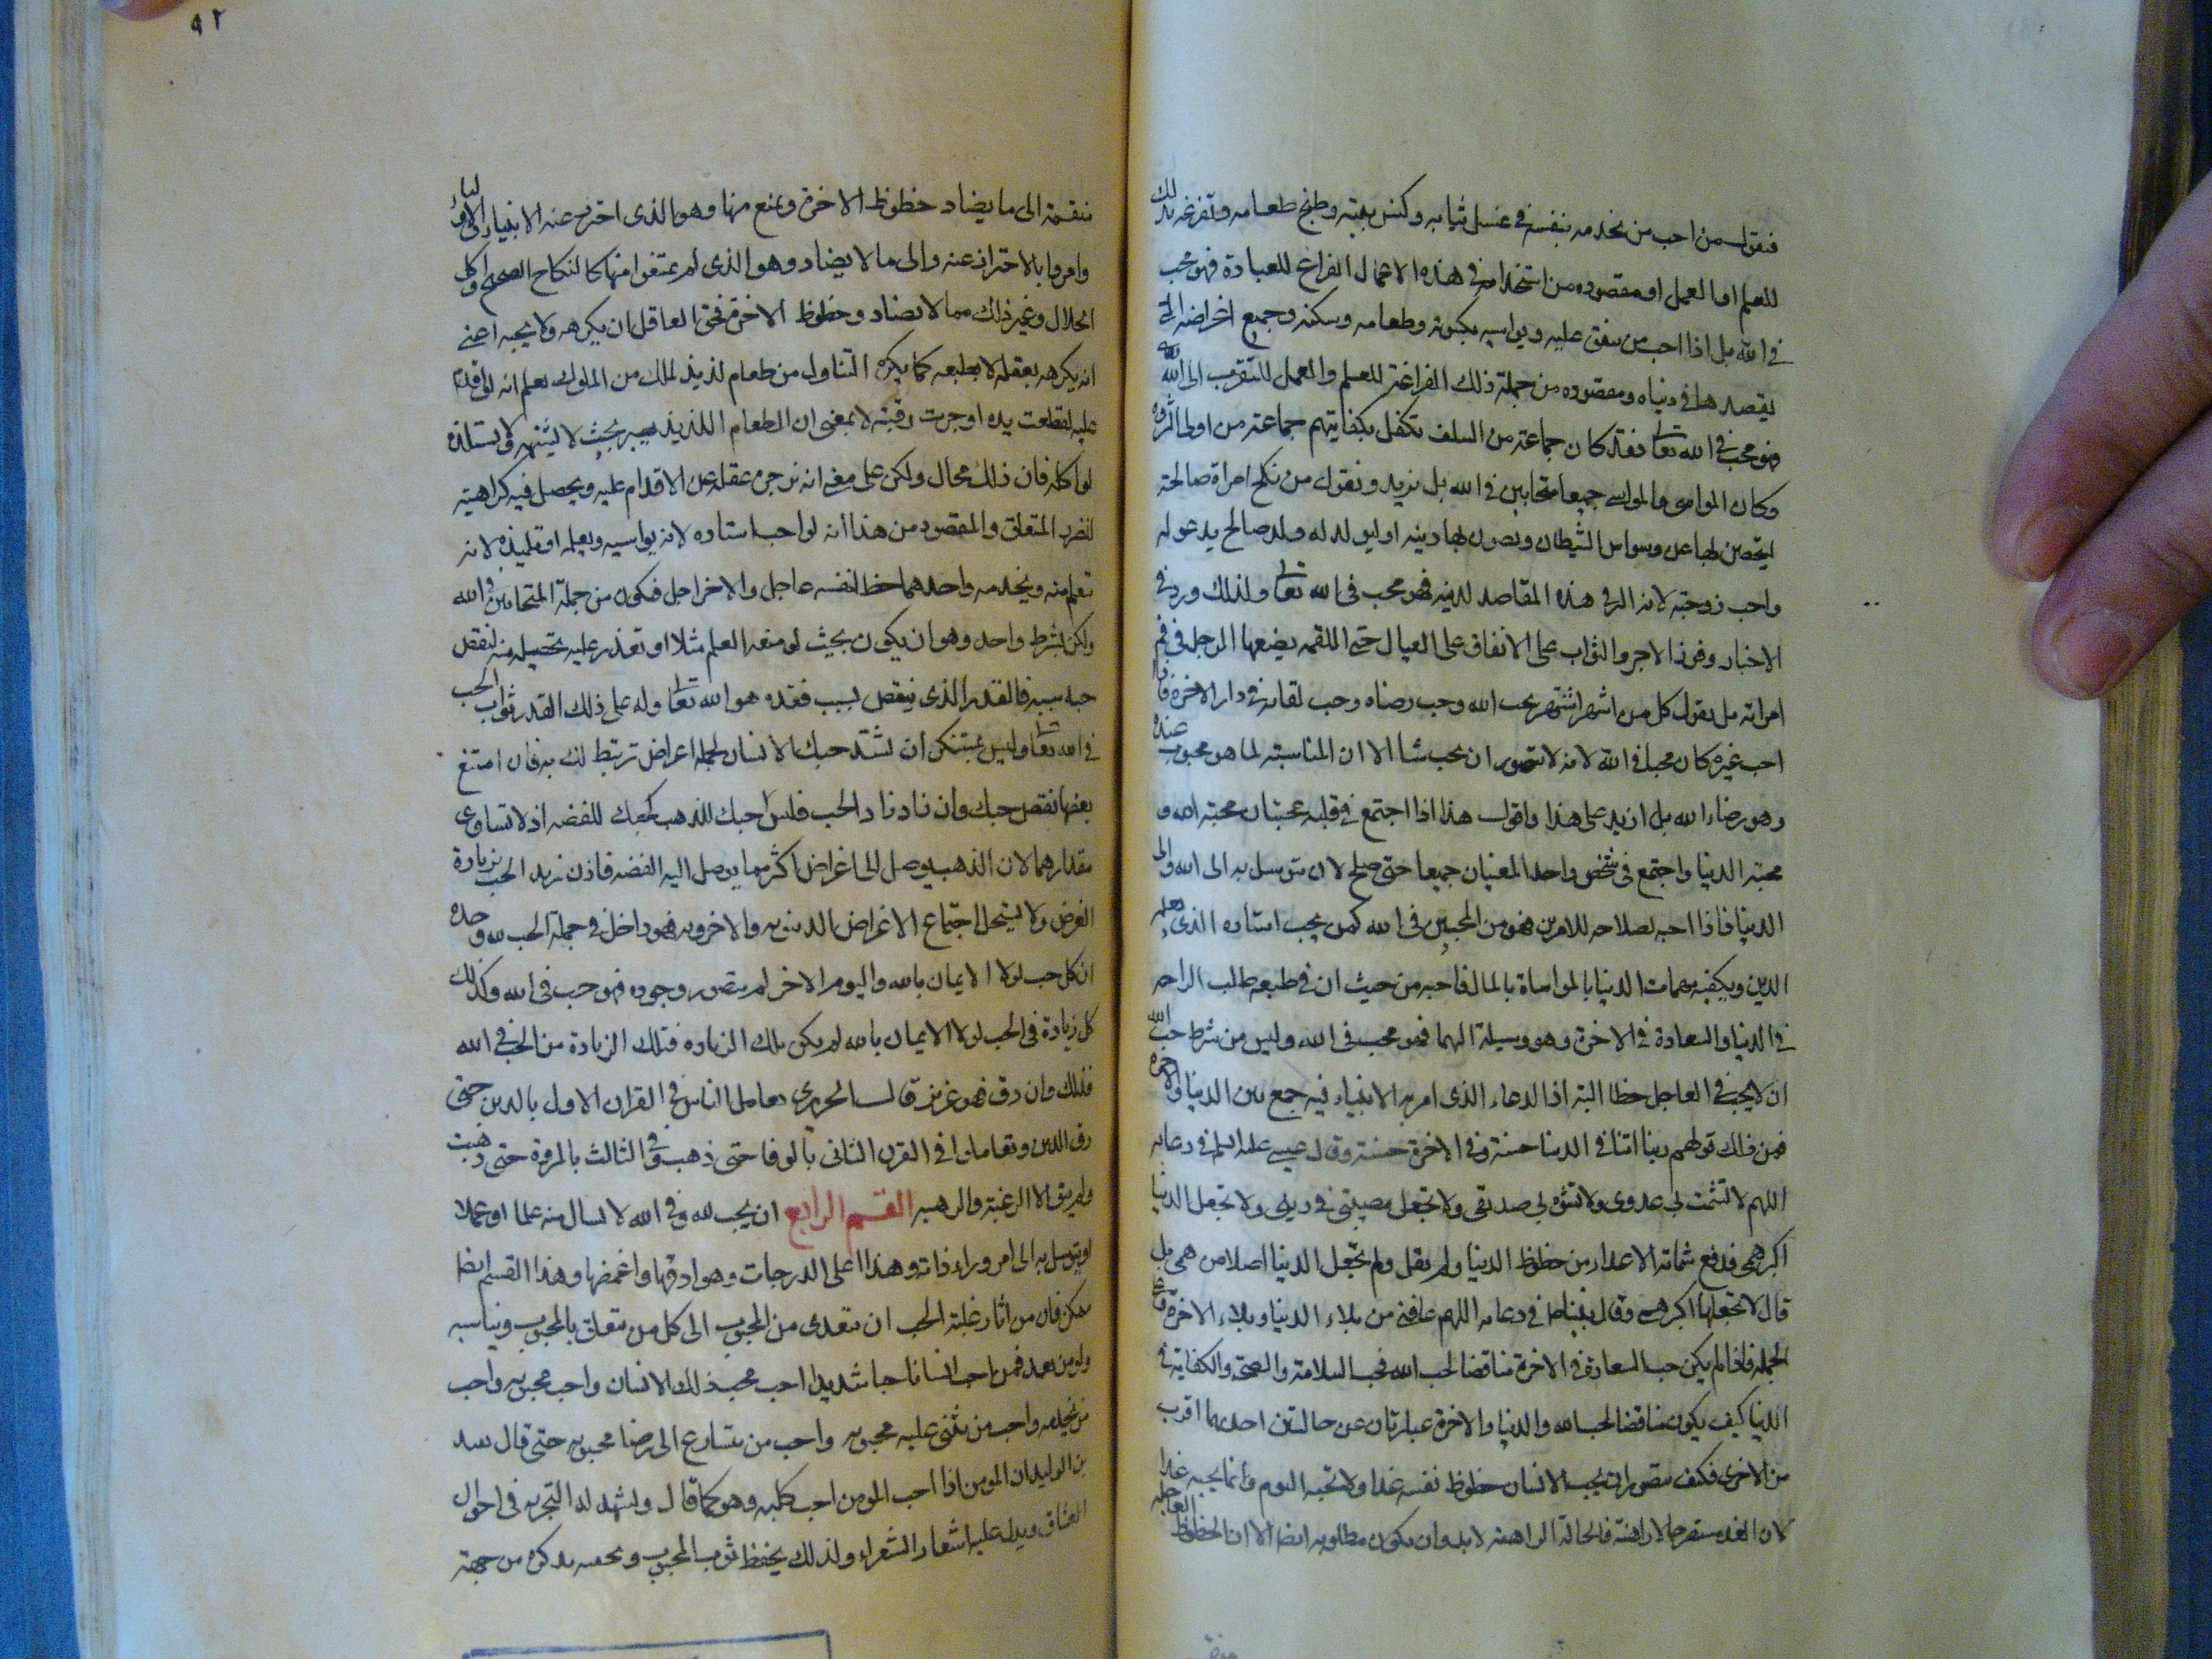 فنقول من احب من يخدمه بنفسه في غسل ثيابه وكنس بيته وطبخ طعامه ويفرغه بذلك
للعلم او العمل او مقصوده من استخدامه في هذه الاعمال الفراغ للعبادة فهو محب
في الله بل اذا احب من ينفق عليه ويواسيه بكسوته وطعامه وسكنه وجميع اغراضه التي
يقصدها في دنياه ومقصوده من جملة ذلك الفراغة للعلم والعمل للتقرب الى الله
فهو محب في الله تعالى فقد كان جماعة من السلف تكفل بكفايتهم جماعة من اولى الثروة
وكان المواسى والمواسي جميعا متحابين في الله بل نزيد ونقول من نكح امراة صالحة
ليتحصن بها عن وسواس الشيطان ويصون بها دينه او ليولد له ولد صالح يدعو له
واحب زوجته لانه الة في هذه المقاصد لدينه فهو محب في الله تعالى ولذلك ورد في
الاخبار وفور الاجر والثواب على الانفاق على العيال حتى اللقمه يضعها الرجل في فم
امراته بل نقول كل من اشتهر بحب الله وحب رضاه وحب لقائه في دار الاخرة فاذا
احب غيره كان محبا في الله لانه لا يتصور ان يحب شيا الا ان المناسبته لما هو محبوب عنده
وهو رضاء الله بل ازيد على هذا واقول هذا اذا اجتمع في قلبه محبتان محبة الله و
محبة الدنيا واجتمع في شخص واحد المعنيان جميعا حتى صلح لان يتوسل به الى الله والى
الدنيا فاذا احبه لصلاحه للامرين فهو من المحبين في الله كمن يحب استاده الذي يعلمه
الدين ويكفيه مهمات الدنيا بالمواساة بالمال فاحبه من حيث ان في طبعه طلب الراحه
في الدنيا والسعادة في الاخرة وهو وسيلة اليهما فهو محب في الله وليس من شرط حب الله
ان لا يحب في العاجل حظا البتة اذ الدعاء الذي امر به الانبياء فيه جمع بين الدنيا والاخرة
فمن ذلك قولهم ربنا اتنا في الدنيا حسنة وفي الاخرة حسنة وقال عيسى عليه السلم في دعائه
اللهم لا تشمت بي عدوى ولا تسؤ بي صديقى ولا تجعل مصيبتى في دينى ولا تجعل الدنيا
اكبر همى فدفع شماتة الاعداء من حظوظ الدنيا ولم يقل ولم تجعل الدنيا اصلا من همى بل
قال لا تجعلها اكبر همى وقال نبينا في دعائه اللهم عافنى من بلاء الدنيا وبلاء الاخرة
الجملة فاذا لم يكن حب السعادة في الاخرة مناقضا لحب الله فحب السلامة والصحة والكفاية في
الدنيا كيف يكون مناقضا لحب الله والدنيا والاخرة عبارتان عن حالتين احدهما اقرب
من الاخرى فكيف يتصور ان يحب الانسان حظوظ نفسه غدا ولا يحبه اليوم وانما يحبه غدا
لان الغد سيصير حالا راهنة فالحالة الراهنة لا بد وان يكون مطلوبه ايضا الا ان الحظوظ العاجله
٩٢
منقسمة الى ما يضاد حظوظ الاخرة ويمنع منها وهو الذى احترز عنه الانبياء والاولياء
وامروا بالاحتراز عنه والى ما لا يضاد وهو الذى لم يمتنعوا منها كالنكاح الصحيح واكل
الحلال وغير ذلك مما لا يضاد وحظوظ الاخرة فحق العاقل ان يكرهه ولا يحبه اعنى
انه يكرهه بعقله لا بطبعه كما يكره التناول من طعام لذيذ لملك من الملوك يعلم انه لو اقدم
عليه لقطعت يده او جزت رقبته لا بمعنى ان الطعام اللذيذ يصير بحيث لا يشتهيه ولا يستلذه
لو اكله فان ذلك محال ولكن على معنى انه يزجره عقله عن الاقدام عليه ويحصل فيه كراهية
الضرر المتعلق والمقصود من هذا انه لو احب استاده لانه يواسيه ويعلمه او تلميذه لانه
تعلم منه ويخدمه واحدهما حظ النفسه عاجل والاخر اجل فيكون من جملة المتحابين في الله
ولكن بشرط واحد وهو ان يكون بحيث لو منعه العلم مثلا او تعذر عليه تحصيله منه لنقص
حبه بسببه فالقدر الذى ينقص بسبب فقده هو الله تعالى وله على ذلك القدر ثواب الحب
في الله تعالى وليس بمستنكر ان يشتد حبك لانسان لجملة اعراض ترتبط لك به فان امتنع
بعضها نقص حبك وان زاد زاد الحب فليس حبك للذهب كحبك للفضه اذ لا تساوى
مقدارهما لان الذهب يوصل الى اغراض اكثر مما يوصل اليه الفضه فاذن يزيد الحب بزيادة
الغرض ولا يستحيل اجتماع الاغراض الدنيويه والاخرويه فهو داخل في جملة الحب لله وحده
ان كل حب لولا الايمان بالله واليوم الاخر لم يتصور وجوده فهو حب في الله وكذلك
كل زيادة في الحب لولا الايمان بالله لم يكن تلك الزياده فتلك الزيادة من الحب في الله
فذلك وان دق فهو عزيز قال الحريرى تعامل الناس في القرن الاول بالدين حتى
رق الدين وتعاملوا في القرن الثانى بالوفا حتى ذهب وفي الثالث بالمروة حتى ذهبت
ولم يبق الا الرغبة والرهبه القسم الرابع ان يحب لله وفي الله لا لينال منه علما او عملا
او يتوسل به الى امر وراء ذاته وهذا اعلى الدرجات وهو ادقها واغمضها وهذا القسم ايضا
ممكن فان من اثار غلبة الحب ان يتعدى من المحبوب الى كل من متعلق بالمحبوب ويناسبه
ولو من بعد فمن احب انسانا حبا شديدا احب محب ذلك الانسان واحب محبوبه واحب
من يخدمه واحب من يثنى عليه محبوبه واحب من يتسارع الى رضا محبوبه حتى قال
بن الوليد ان المومن اذا احب المومن احب كلبه وهو كما قال ويشهد له التجربه في احوال
العشاق ويدل عليه اشعار الشعراء ولذلك يحفظ ثوب المحبوب ويخفيه تذكره من جهته